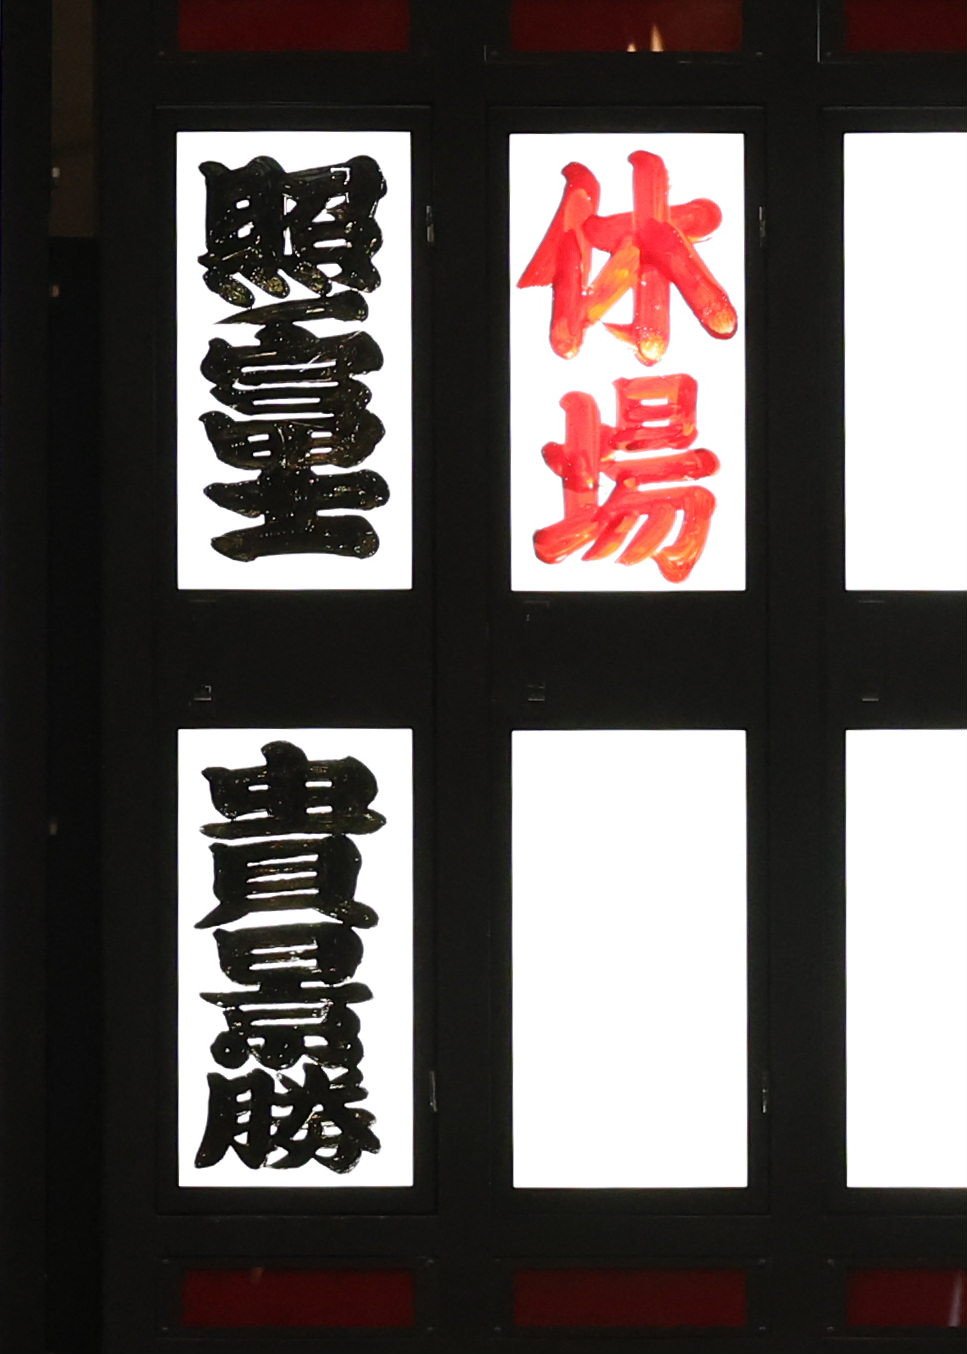 休場
照ノ富士
貴景勝